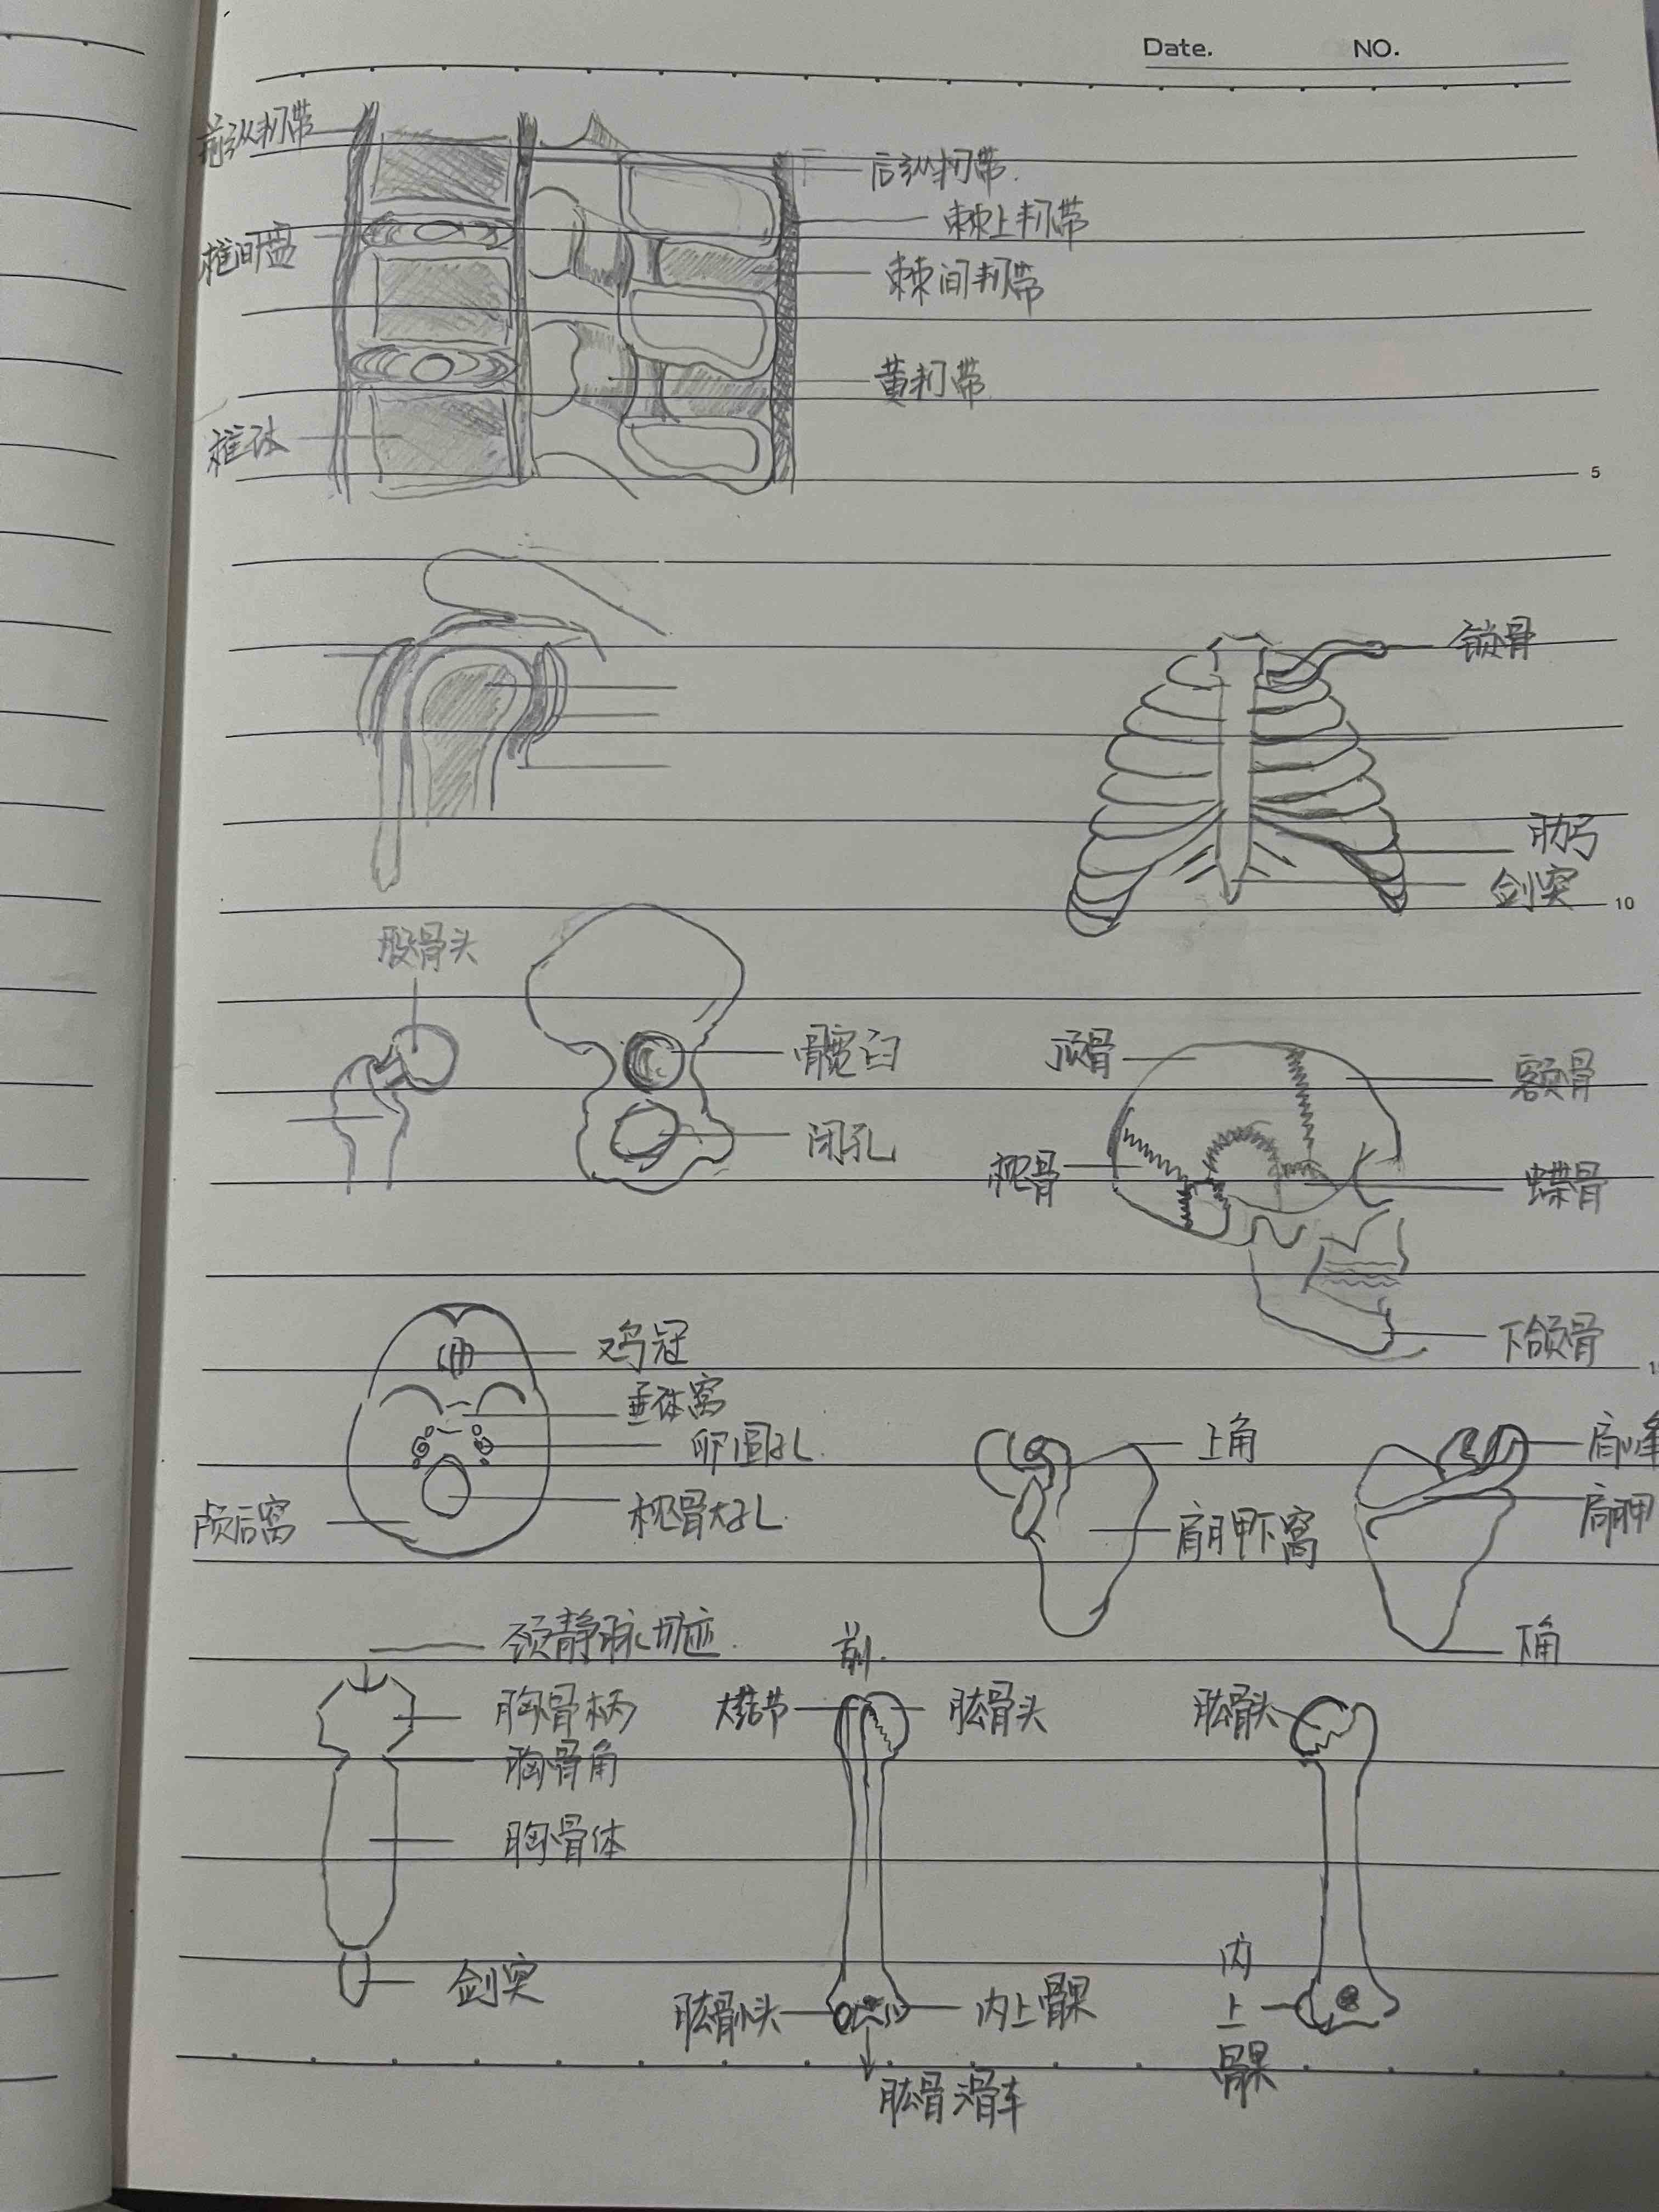 Date. NO.
前纵韧带
后纵韧带.
棘上韧带
椎间盘
棘间韧带
黄韧带
椎体
5
锁骨
肋弓
剑突
10
股骨头
髋臼
闭孔
顶骨
额骨
枕骨
蝶骨
下颌骨
鸡冠
垂体窝
卵圆孔.
枕骨大孔.
颅后窝
上角
肩胛下窝
肩峰
肩胛
下角
颈静脉切迹.
胸骨柄
胸骨角
胸骨体
剑突
前.
大结节
肱骨头
肱骨小头
内上髁
肱骨滑车
肱骨头
内
上
髁